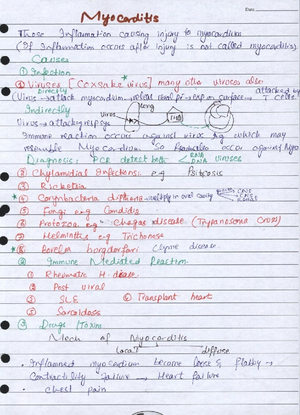 Date
Myocarditis
Those Inflammation causing injury to myocardium
(If Inflammation occurs after injury is not called myocarditis)
Causes
① Infection
② Viruses [Coxsake virus] many other viruses also
Directly attacked by
(Virus → attack myocardium → viral on surface → T cells)
Indirectly
Virus
Immune reaction occurs against virus Ag which may
resemble Myocardium. So Reaction also occur against Myo
Diagnosis: PCR detect both RNA DNA viruses
② Chylamdial Infections e.g Psitcosis
③ Ricketsia
④ Corynbacteria diptheria → multiply in oral cavity
⑤ Fungi e.g Candida
⑥ Protozoa e.g Chagas disease (Trypanosoma Cruzi)
⑦ Helminths e.g Trichonosis
⑧ Borelia borgdorferi Lyme disease
② Immune Mediated Reaction
① Rheumatic H-disease
② Post viral
③ SLE ⑥ Transplant heart
⑤ Sarcoidosis
③ Drugs Toxins
Mech of Myocarditis
Local diffuse
• Inflammed myocardium become loose & flabby →
Contractility failure → Heart failure
• Chest pain